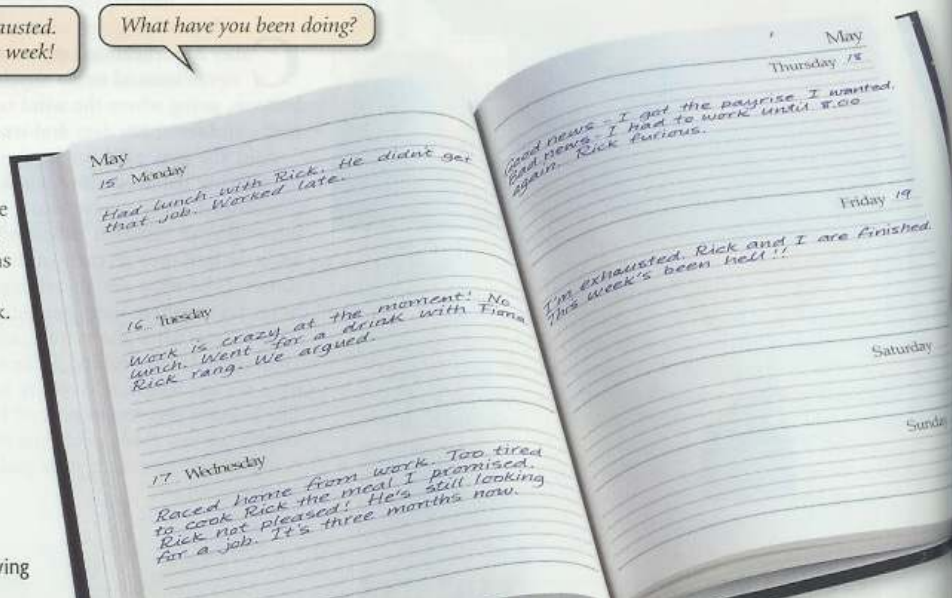 austed.
week!
What have you been doing?
May
15 Monday
Had lunch with Rick. He didn't get
that job. Worked late.
16 Tuesday
Work is crazy at the moment! No
lunch. Went for a drink with Fiona
Rick rang. We argued.
17 Wednesday
Raced home from work. Too tired
to cook Rick the meal I promised.
Rick not pleased! He's still looking
for a job. It's three months now.
May
Thursday 18
Good news - I got the payrise I wanted.
Bad news - I had to work until 8.00
again. Rick furious.
Friday 19
I'm exhausted. Rick and I are finished.
This week's been hell!!
Saturday
Sunday